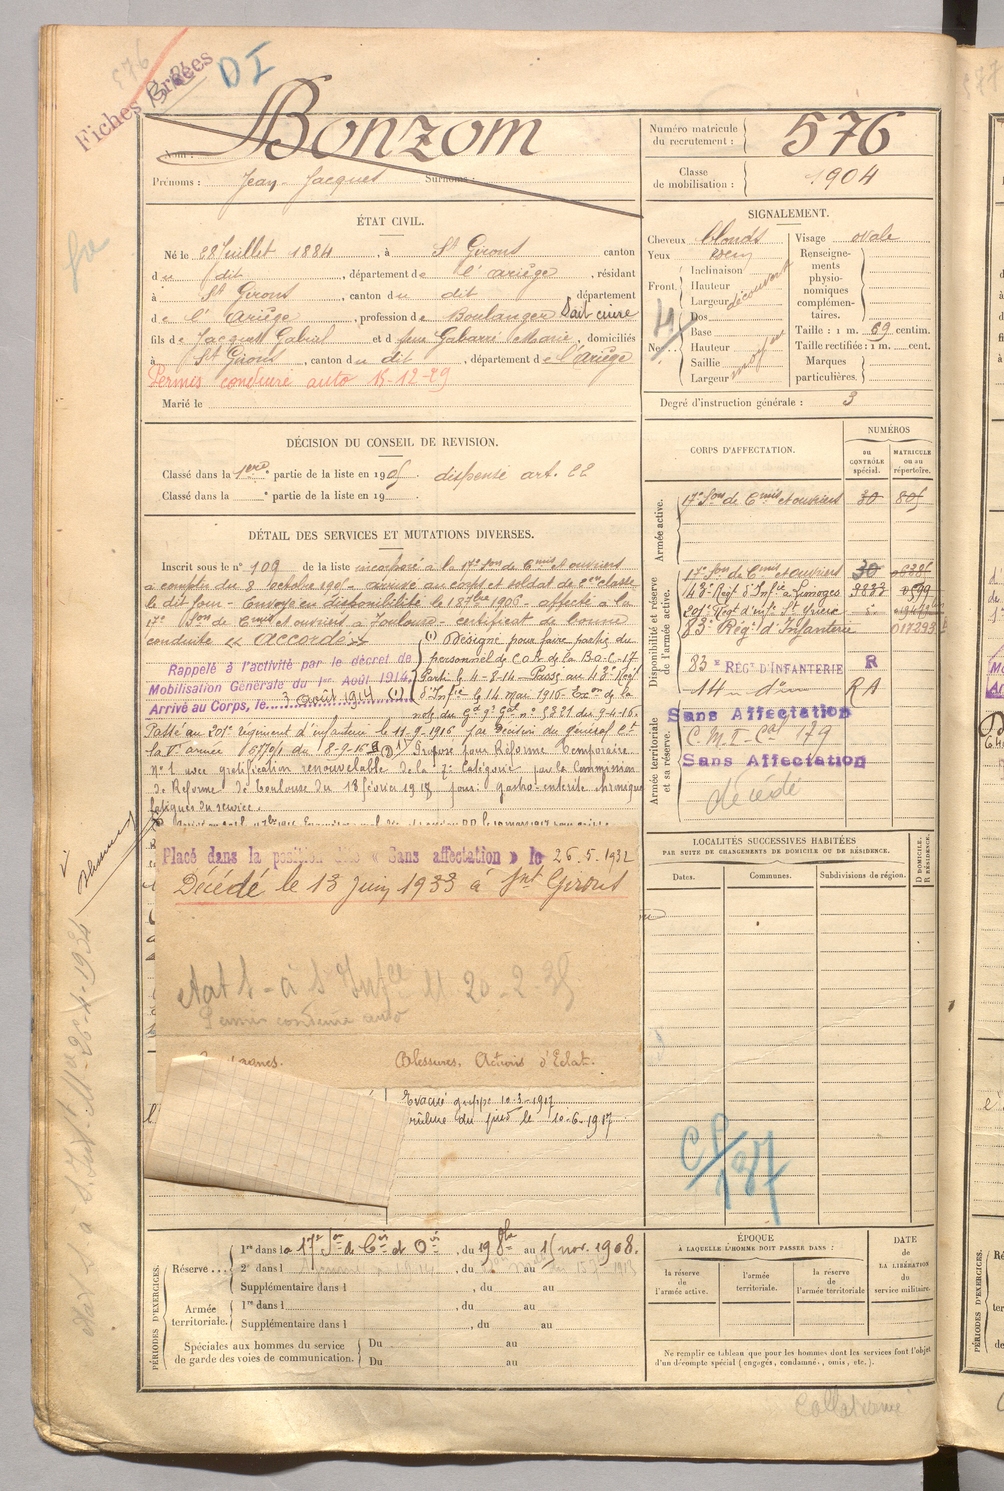 576
Fiches
DI
Nom : Bonzom
Prénoms : Jean Jacques Surnoms :
Numéro matricule du recrutement : 576
Classe de mobilisation : 1904
ÉTAT CIVIL.
Né le 28 Juillet 1884, à St Girons canton
du dit, département de l'Ariège, résidant
à St Girons, canton du dit département
de l'Ariège, profession de Boulanger Sait cuire
fils de Jacques Gabriel et de feue Gabarre Marie, domiciliés
à St Girons, canton du dit, département de l'Ariège
Permis conduire auto
Marié le
SIGNALEMENT.
Cheveux blonds
Yeux
Front. Inclinaison
Hauteur
Largeur découvert
Nez. Dos
Base
Hauteur
Saillie
Largeur moyen
Visage ovale
Renseignements physionomiques complémentaires.
Taille : 1 m. 69 centim.
Taille rectifiée : 1 m. cent.
Marques particulières.
Degré d'instruction générale : 3
DÉCISION DU CONSEIL DE REVISION.
Classé dans la 1ere partie de la liste en 1905 dispensé art. 22
Classé dans la e partie de la liste en 19
DÉTAIL DES SERVICES ET MUTATIONS DIVERSES.
Inscrit sous le n° 109 de la liste incorporé à la 17e Son de Cmis et ouvriers
à compter du 8 octobre 1905 - arrivé au corps et soldat de 2eme classe
le dit jour - Envoyé en disponibilité le 18 7bre 1906 - affecté à la
17e Son de Cmis et ouvriers à Toulouse - certificat de bonne
conduite « accordé »
Rappelé à l'activité par le décret de
Mobilisation Générale du 1er Août 1914
Arrivé au Corps, le 3 Août 1914 (1)
(1) Désigné pour faire partie du
personnel de C.O.A. de la B.O.C. 17
Parti le 4-8-14 - Passé au 43e Regt
d'Infie le 14 mai 1916 - Exon de la
note du Gd Ql Gal n° 5321 du 9-4-16.
Passé au 201e régiment d'infanterie le 11-9-1916 par Décision du général Ct
la Ve armée du 8-9-16 Proposé pour Réforme Temporaire
n° 1 avec gratification renouvelable de la 7e Catégorie par la Commission
de Réforme de Toulouse du 18 février 1918 pour : gastro-entérite chronique
fatigues du service.
Placé dans la position dite « Sans affectation » le 26.5.1932
Décédé le 13 Juin 1933 à Snt Girons
Permis conduire auto
Blessures. Actions d'Éclat.
Evacué grippe 10-3-1917
brûlure du pied le 10-6-1917
CORPS D'AFFECTATION.
NUMÉROS
au CONTRÔLE spécial.
MATRICULE ou au répertoire.
Armée active.
17e Son de Cmis et ouvriers 30 805
Disponibilité et réserve de l'armée active.
17e Son de Cmis et ouvriers 30
43e Régt d'Infie à Limoges
201e Régt d'infie St Yrieix
83e Régt d'Infanterie
83e RÉGt D'INFANTERIE R
14 - dn - RA
Armée territoriale et sa réserve.
Sans Affectation
C.M.I - Cal 179
Sans Affectation
décédé
LOCALITÉS SUCCESSIVES HABITÉES
PAR SUITE DE CHANGEMENTS DE DOMICILE OU DE RÉSIDENCE.
Dates. Communes. Subdivisions de région. D DOMICILE. R RÉSIDENCE.
PÉRIODES D'EXERCICES.
Réserve... 1re dans la 17e Son de Cis et Ors, du 19 8bre au 15 nov. 1908.
2e dans l , du au
Supplémentaire dans l , du au
Armée territoriale. 1re dans l , du au
Supplémentaire dans l , du au
Spéciales aux hommes du service de garde des voies de communication. Du au
Du au
ÉPOQUE
A LAQUELLE L'HOMME DOIT PASSER DANS :
la réserve de l'armée active.
l'armée territoriale.
la réserve de l'armée territoriale
DATE de LA LIBÉRATION du service militaire.
Ne remplir ce tableau que pour les hommes dont les services font l'objet
d'un décompte spécial (engagés, condamnés, omis, etc.).